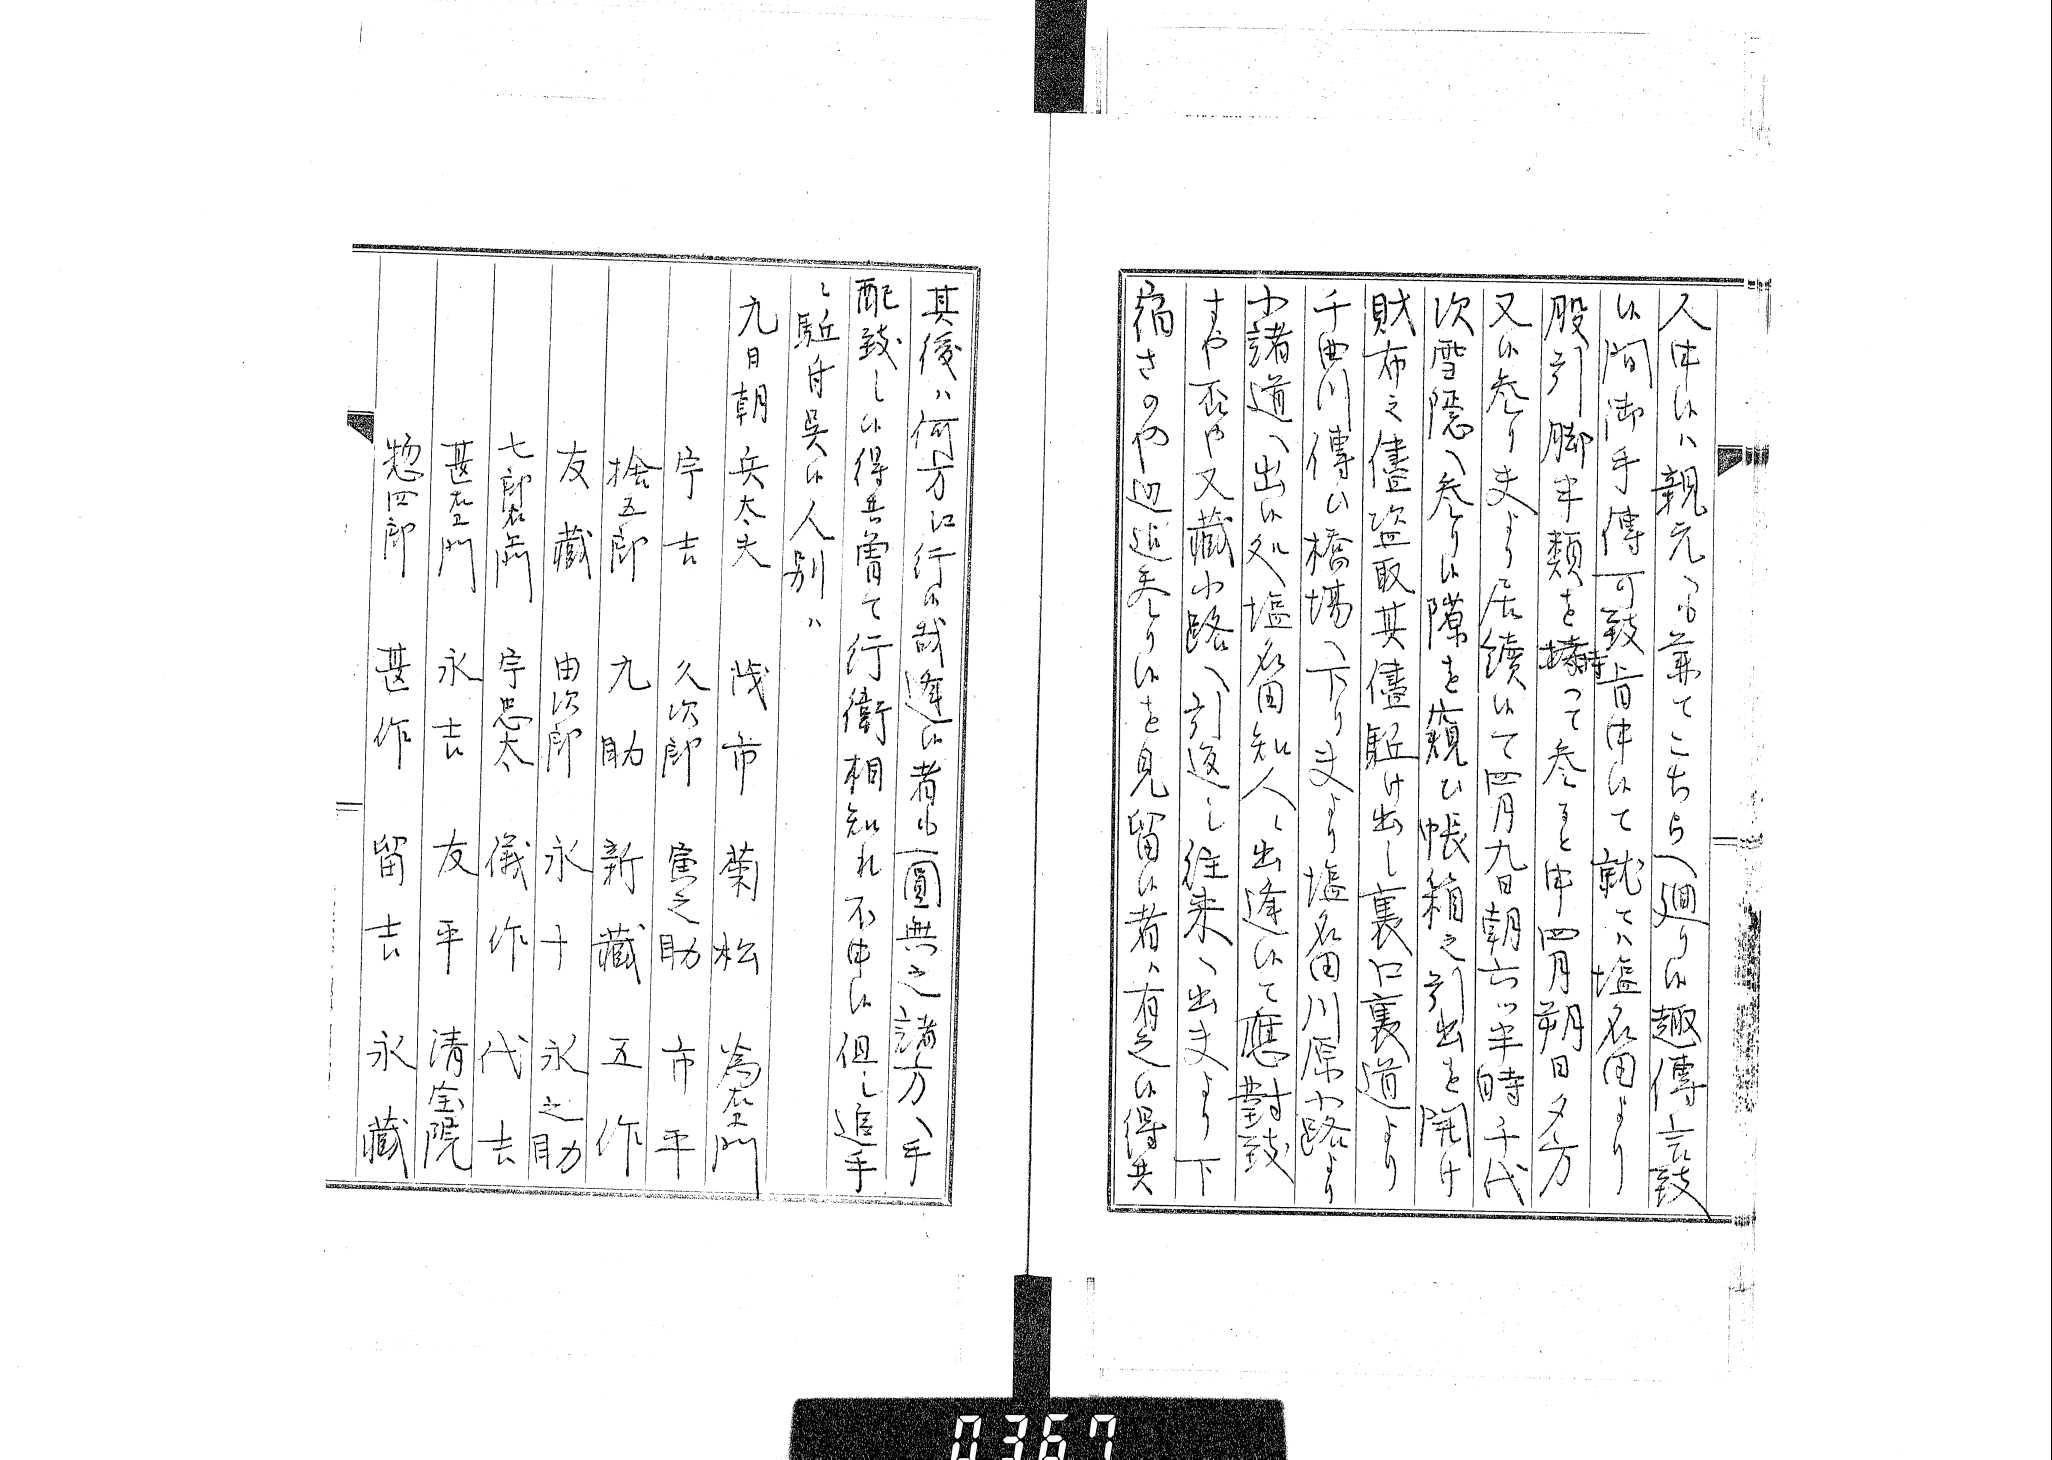 人申候ハ親元へも兼てこちらへ廻り候趣傳言致
候間御手傳可致旨申候て就てハ塩名田より
股引脚半類を持つて参ると申四月朔日夕方
又候参り夫より居續候て四月九日朝六ツ半時千代
次雪隠へ参り候隙を窺ひ帳箱之引出を開け
財布之儘盗取其儘駈け出し裏口裏道より
千曲川傳ひ橋場へ下り夫より塩名田川原小路より
小諸道へ出候処塩名田知人ニ出逢候て應對致
すや否や又藏小路へ引返し往来へ出夫より下
宿さのや辺迄参り候を見留候者ハ有之候得共
其後ハ何方江行候哉逢候者も一圓無之諸方へ手
配致し候得共曽て行衛相知れ不申候但し追手
ニ駈付呉候人別ハ
九日朝 兵太夫 茂市 菊松 為右衛門
宇吉 久次郎 寅之助 市平
捨五郎 九助 新藏 五作
友藏 由次郎 永十 永之助
七郎右衛門 宇忠太 儀作 代吉
甚右衛門 永吉 友平 清宝院
惣四郎 甚作 留吉 永藏
0367